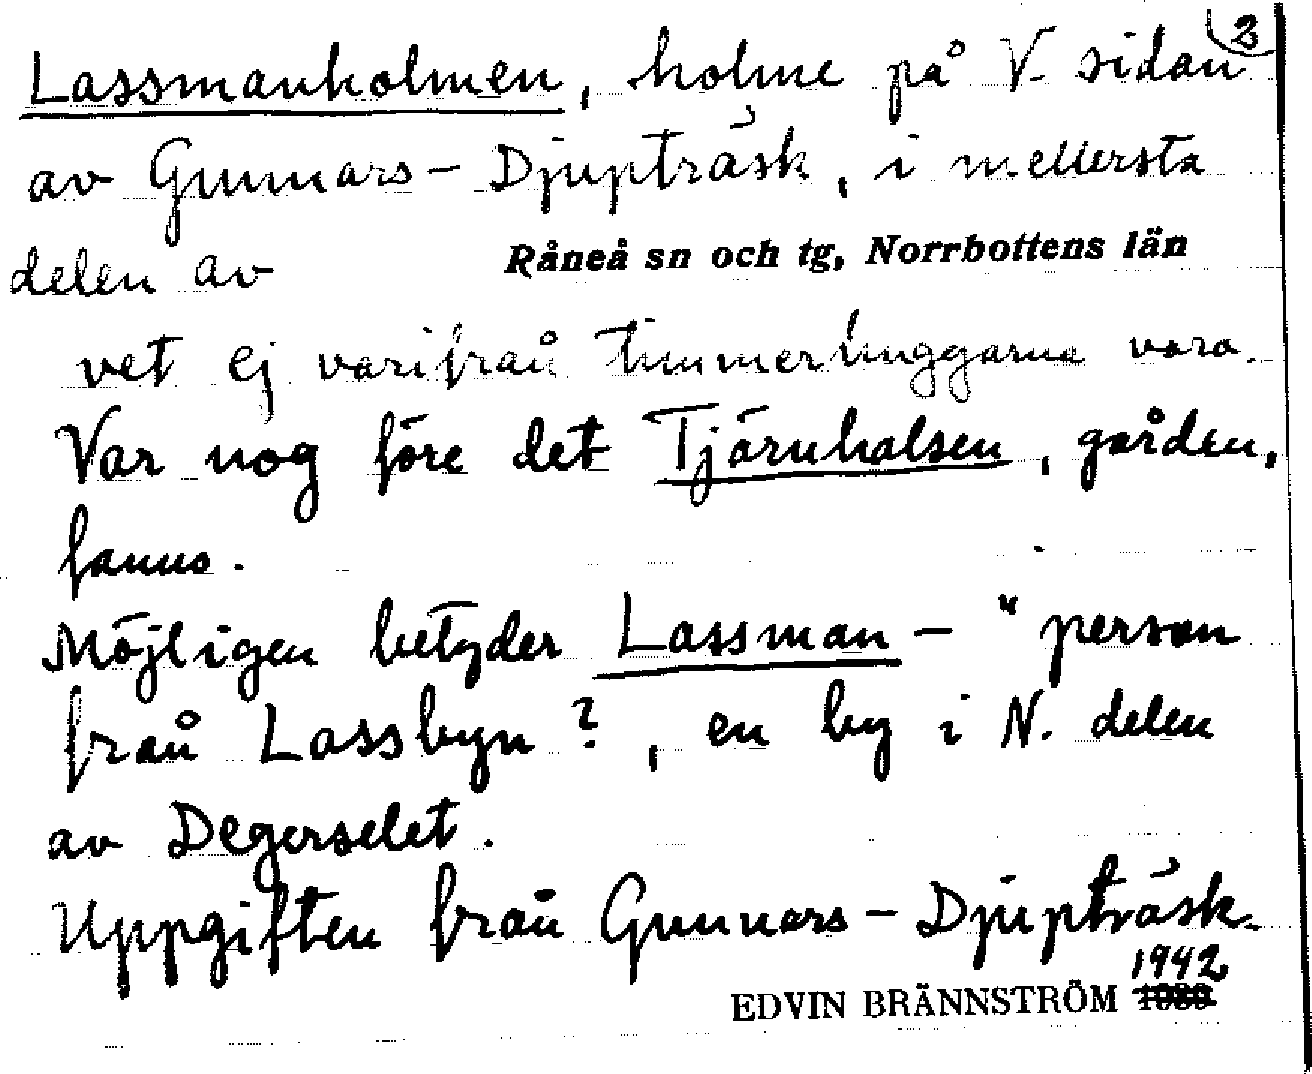 2
Lassmanholmen, holme på V. sidan
av Gunnars-Djupträsk, i mellersta
delen av Råneå sn och tg, Norrbottens län
vet ej varifrån timmerhuggarna voro.
Var nog före det Tjärnhalsen, gården,
fanns.
Möjligen betyder Lassman- "person
från Lassbyn?, en by i N. delen
av Degerselet.
Uppgiften från Gunnars-Djupträsk.
1942
EDVIN BRÄNNSTRÖM